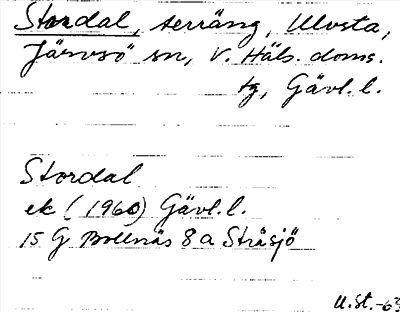 Stordal, terräng, Ulvsta,
Järvsö sn, V. Häls. doms.
tg, Gävl.l.
Stordal
ek (1960) Gävl.l.
15 G Bollnäs 8a Stråsjö
U.St.-63